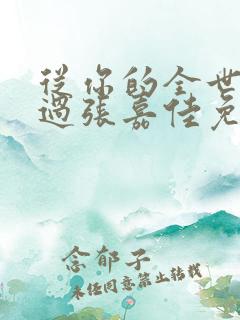 從你的全世
過張嘉佳免
念郁子
未经同意禁止转载